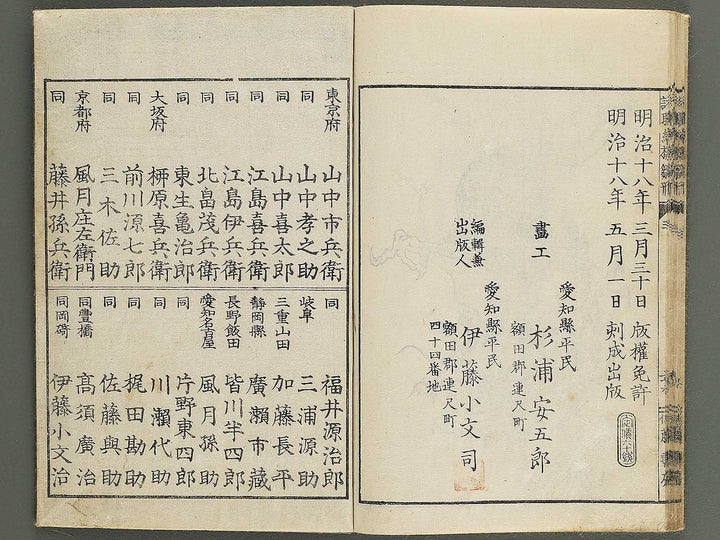 明治十八年三月三十日版權免許
明治十八年五月一日刺成出版
愛知縣平民
畫工
杉浦安五郎
額田郡連尺町
編輯兼
出版人
愛知縣平民
伊藤小文司
額田郡連尺町
四十四番地
東京府 山中市兵衛
同 山中孝之助
同 山中喜太郎
同 江島喜兵衛
同 江島伊兵衛
同 北畠茂兵衛
同 東生亀治郎
大坂府 柳原喜兵衛
同 前川源七郎
同 三木佐助
京都府 風月庄左衛門
同 藤井孫兵衛
同 福井源治郎
岐阜 三浦源助
三重山田 加藤長平
靜岡縣 廣瀬市藏
長野飯田 皆川半四郎
愛知名古屋 風月孫助
同 片野東四郎
同 川瀬代助
同 梶田勘助
同 佐藤與助
同豊橋 高須廣治
同岡﨑 伊藤小文治